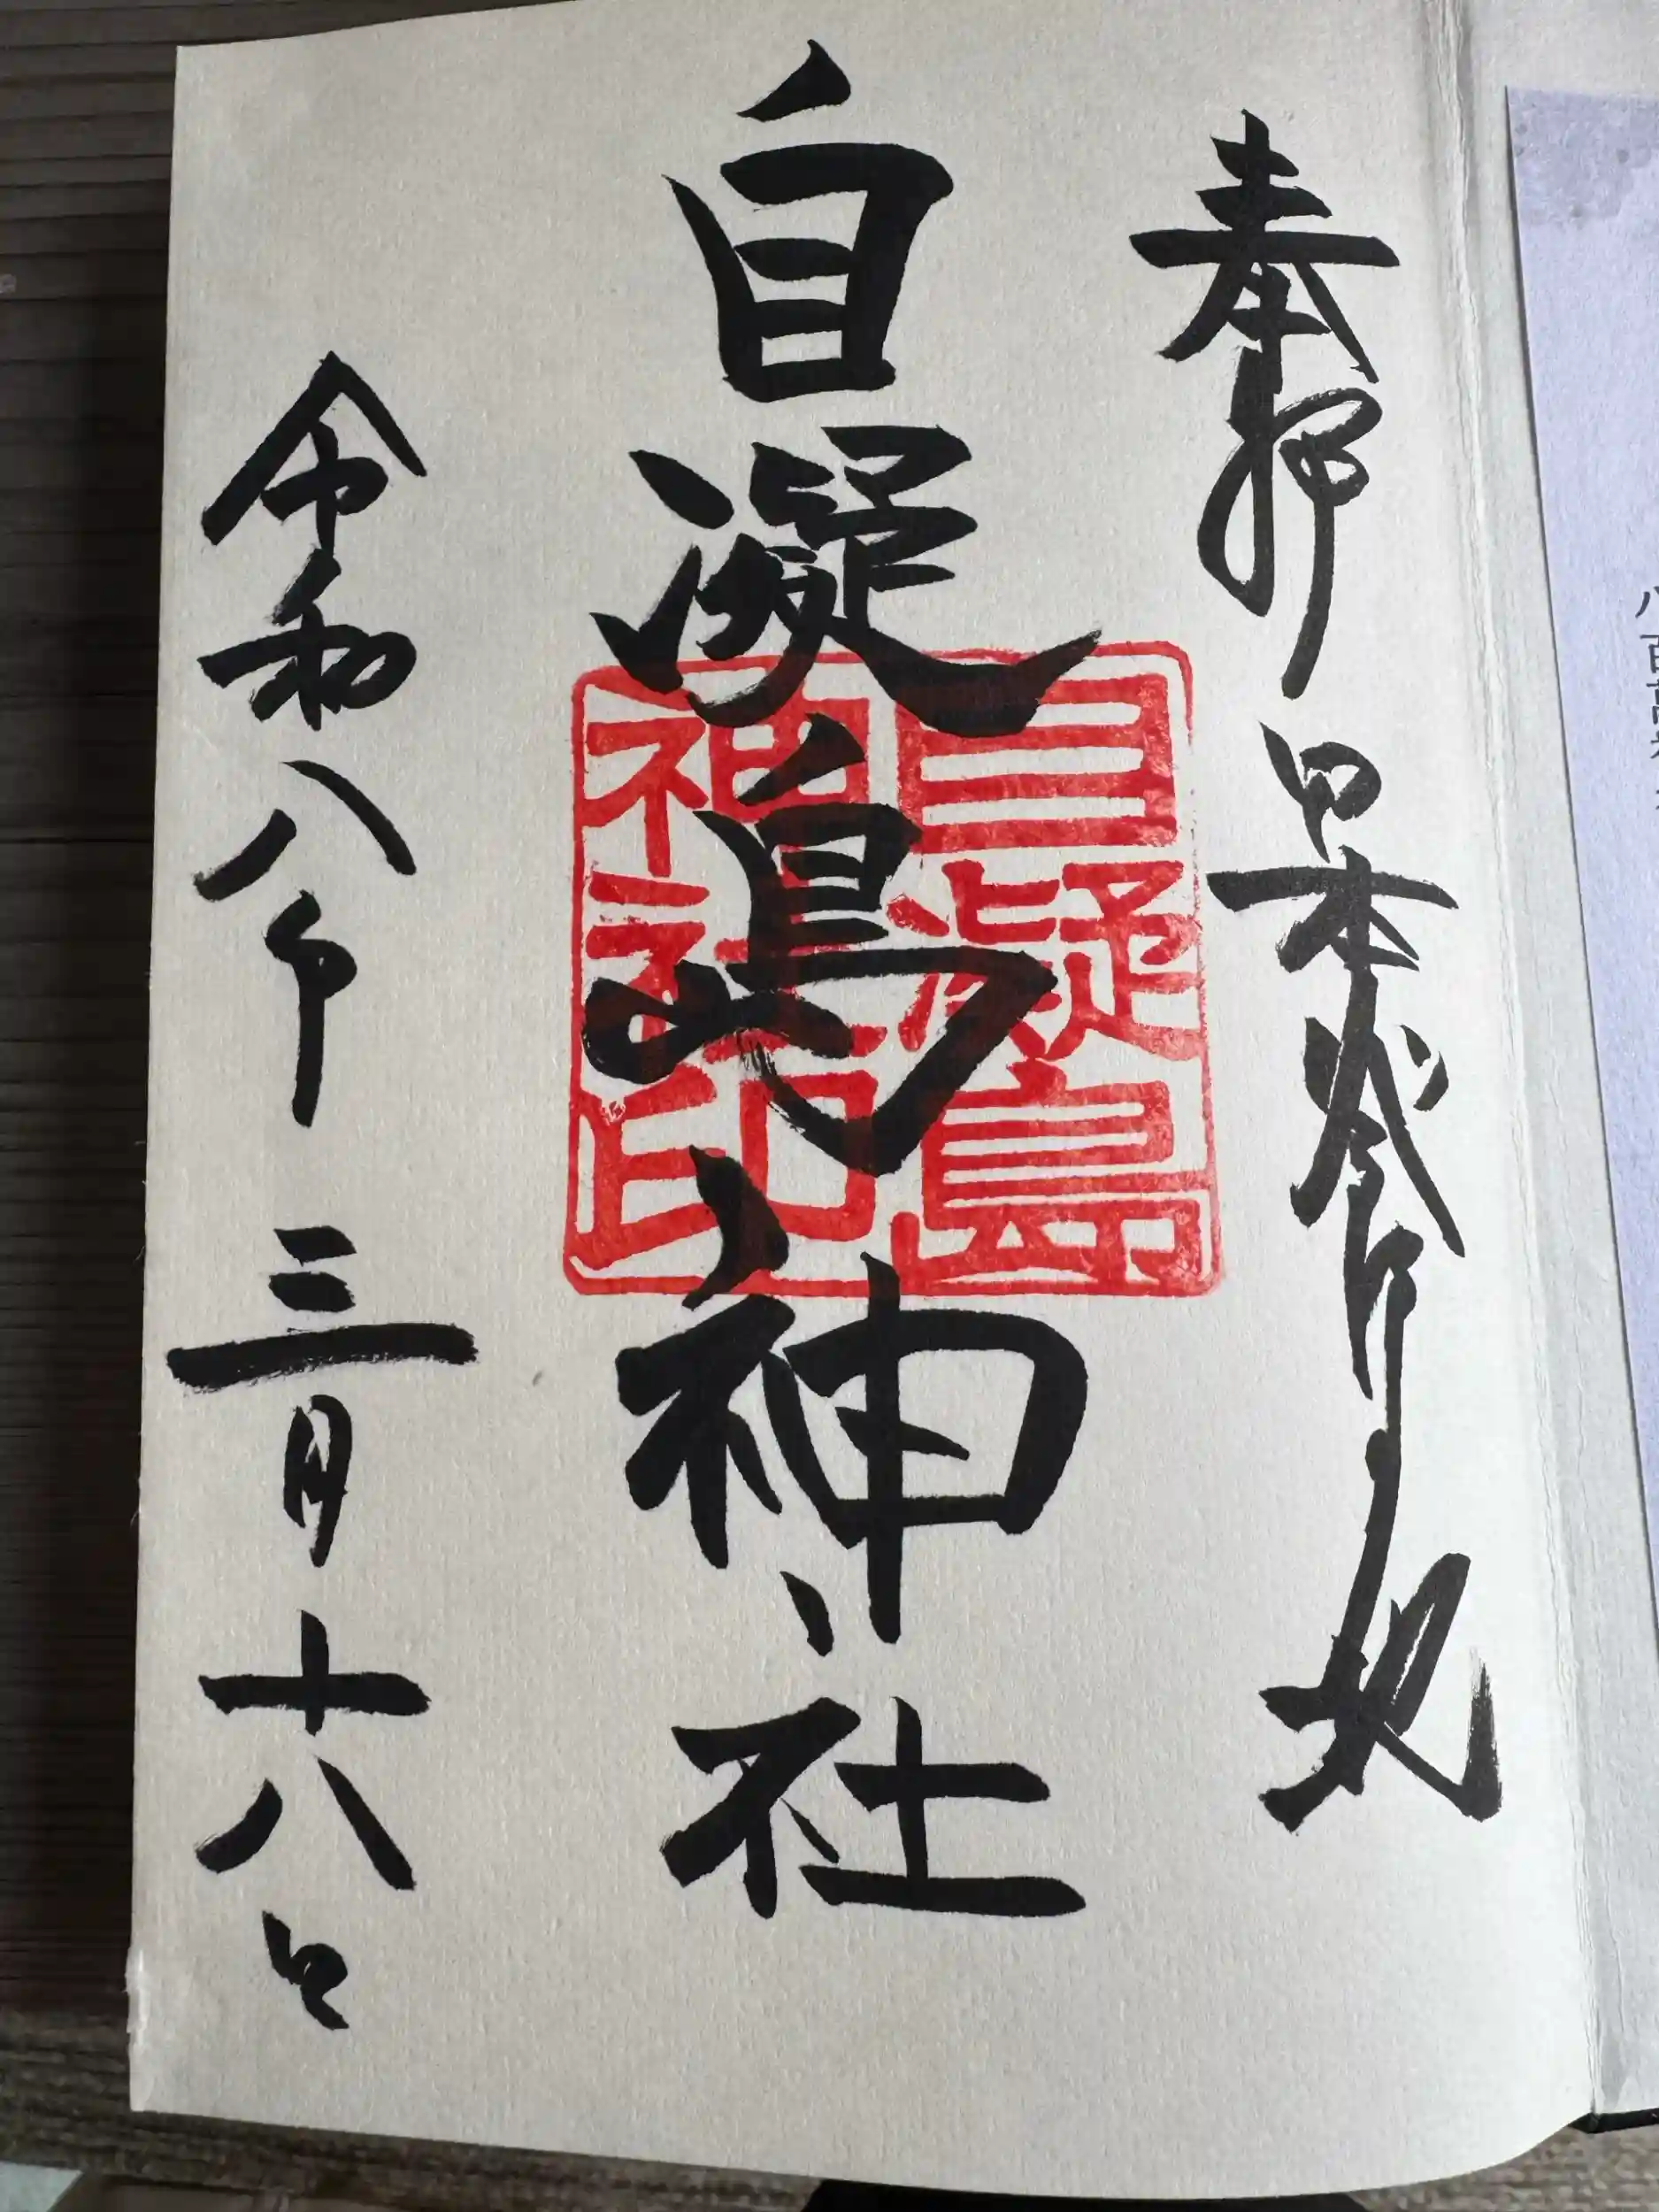 奉拝 日本発祥地
自凝島神社
自凝島
神社印
令和八年 三月十八日